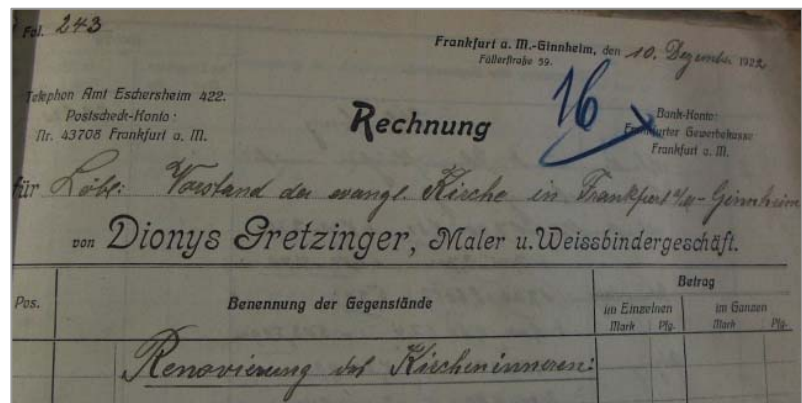 Fol. 243
Frankfurt a. M.-Ginnheim, den 10. Dezember 1922
Füllerstraße 59.
16
Telephon Amt Eschersheim 422.
Postscheck-Konto:
Nr. 43708 Frankfurt a. M.
Rechnung
Bank-Konto:
Frankfurter Gewerbekasse
Frankfurt a. M.
für Löbl: Vorstand der evangl. Kirche in Frankfurt a/M-Ginnheim
von Dionys Gretzinger, Maler u. Weissbindergeschäft.
Pos.
Benennung der Gegenstände
Betrag
im Einzelnen
im Ganzen
Mark Pfg.
Mark Pfg.
Renovierung des Kircheninneren: